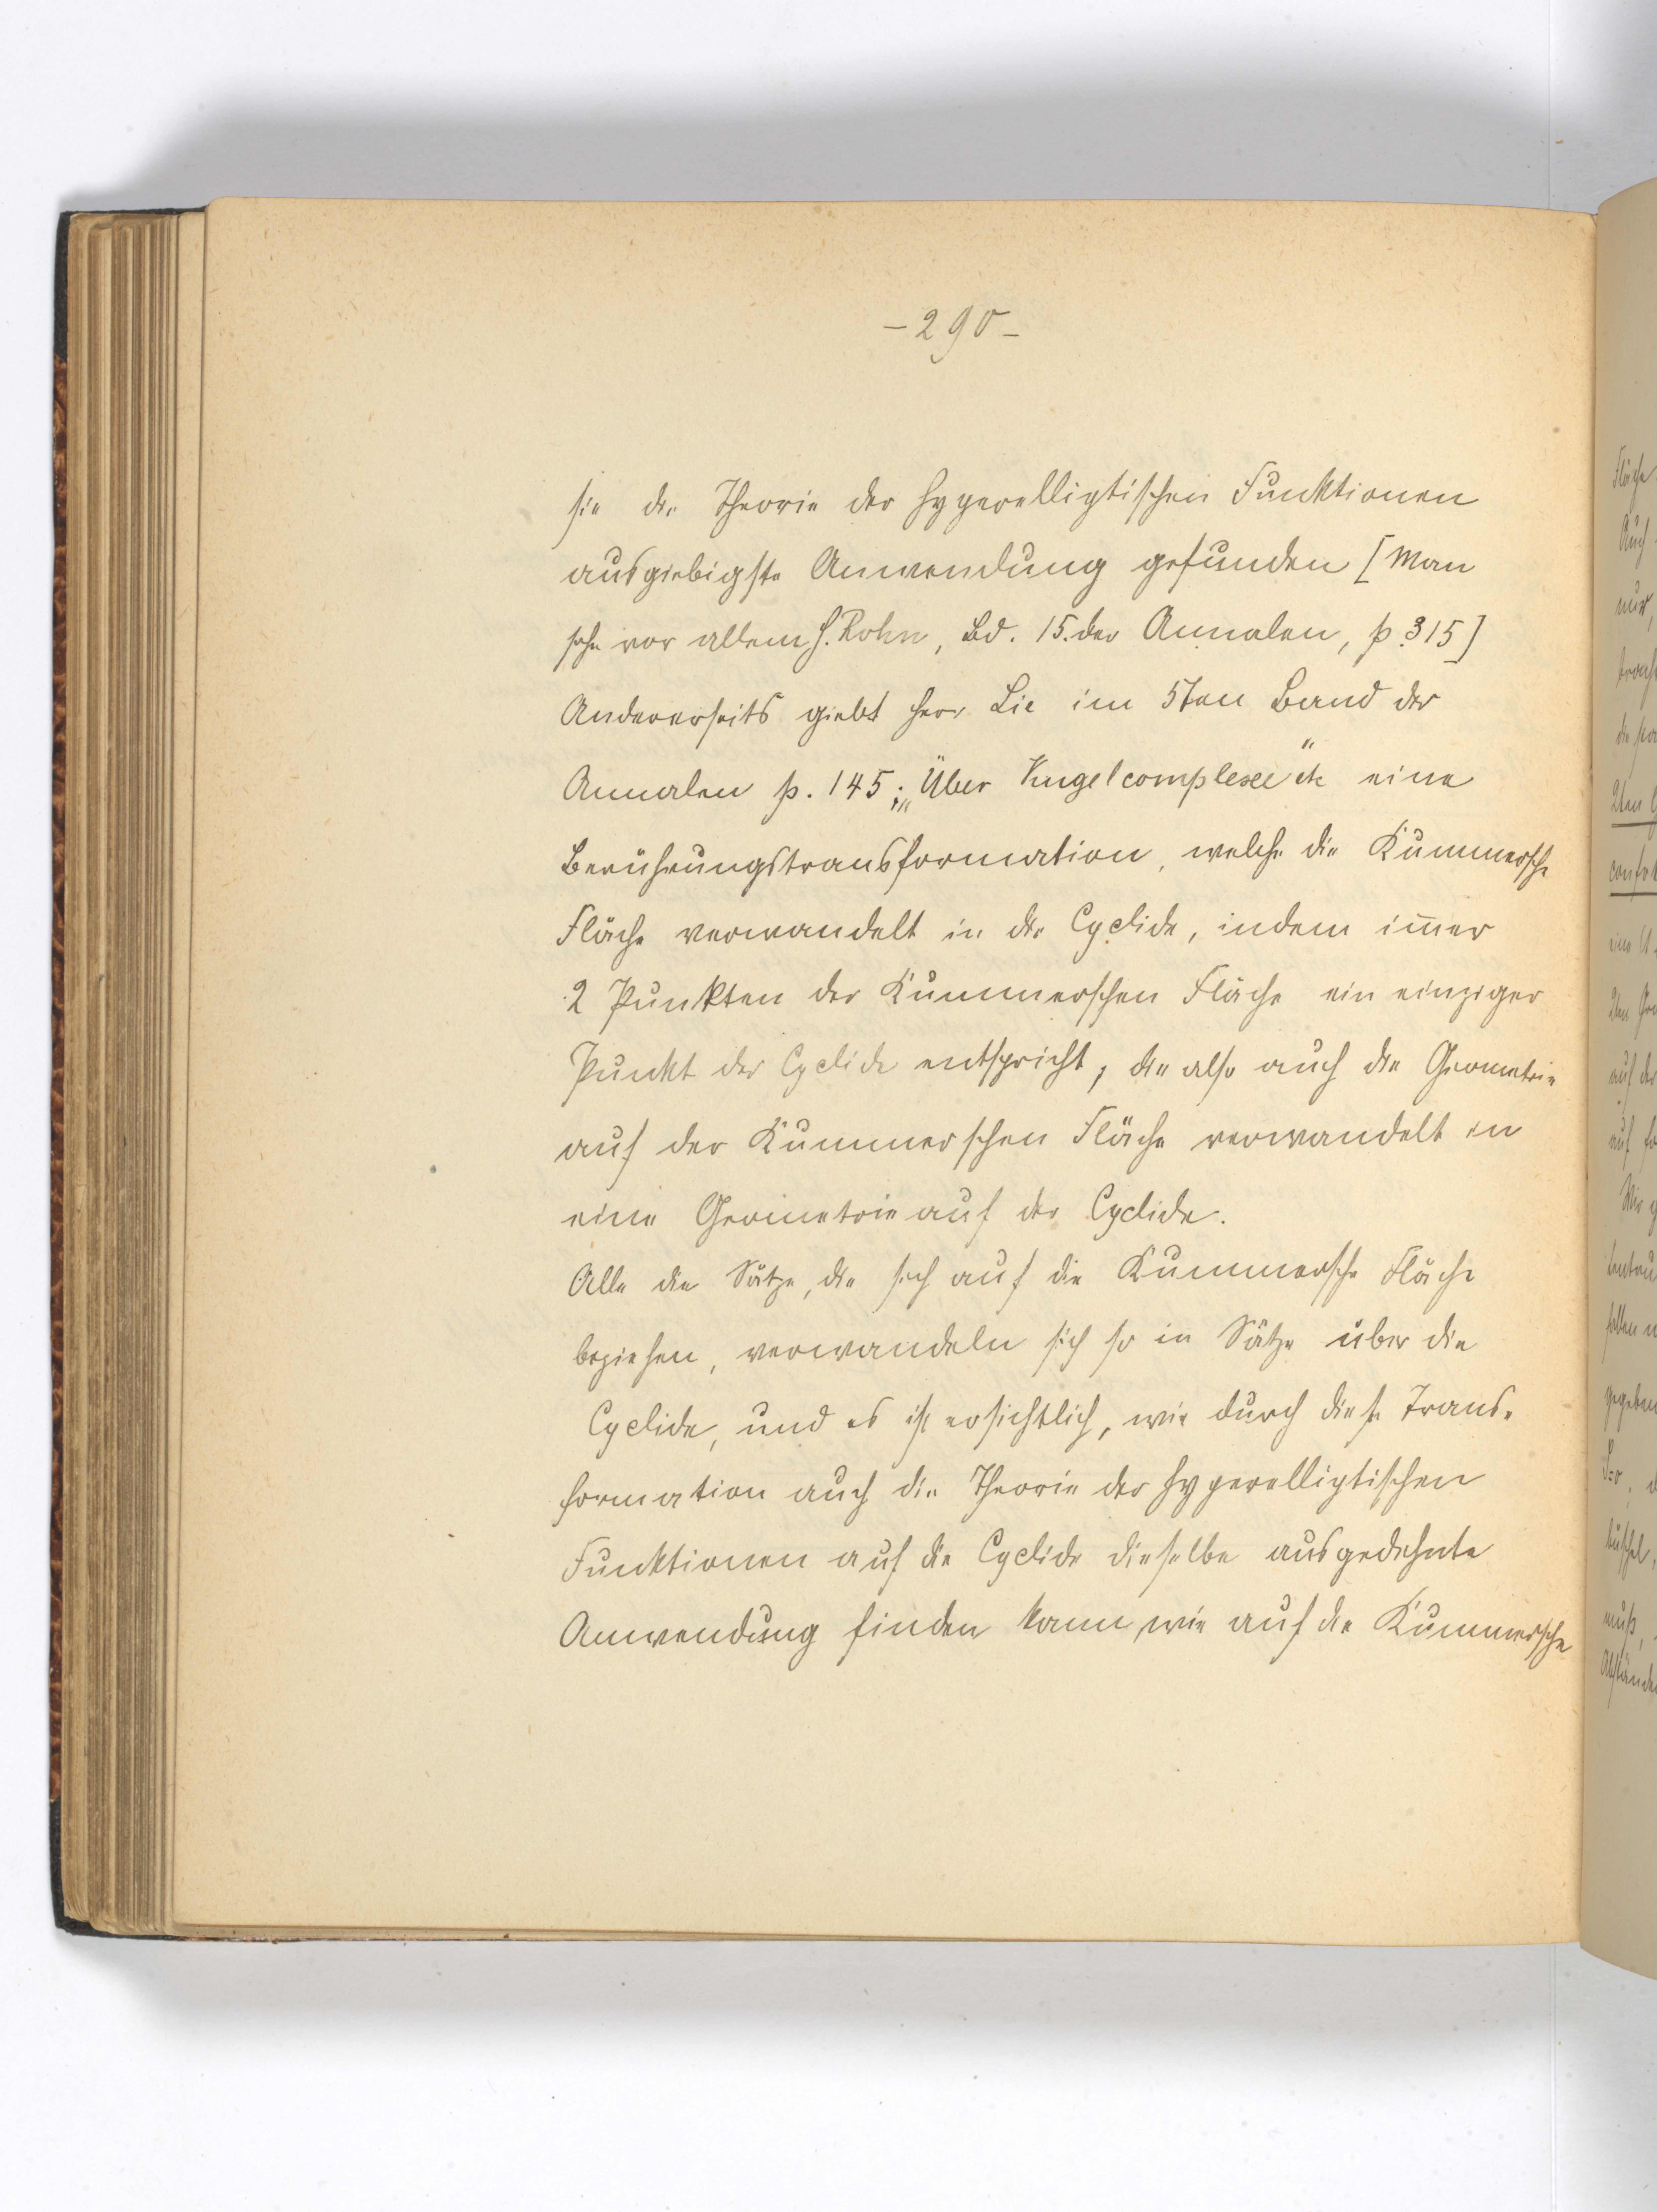 - 290 -
sie die Theorie der hyperelliptischen Funktionen
ausgiebigste Anwendung gefunden [Man
sehe vor allem H. Rohn, Bd. 15. der Annalen, p. 315]
Andererseits giebt Herr Lie im 5ten Band der
Annalen p. 145; „Über Kugelcomplexe" etc eine
Berührungstransformation, welche die Kummersche
Fläche verwandelt in die Cyclide, indem im̄er
2 Punkten der Kummerschen Fläche ein einziger
Punkt der Cyclide entspricht, die also auch die Geometrie
auf der Kummerschen Fläche verwandelt in
eine Geometrie auf der Cyclide.
Alle die Sätze, die sich auf die Kummersche Fläche
beziehen, verwandeln sich so in Sätze über die
Cyclide, und es ist ersichtlich, wie durch diese Trans-
formation auch die Theorie der hyperelliptischen
Funktionen auf die Cyclide dieselbe ausgedehnte
Anwendung finden kann, wie auf die Kummersche